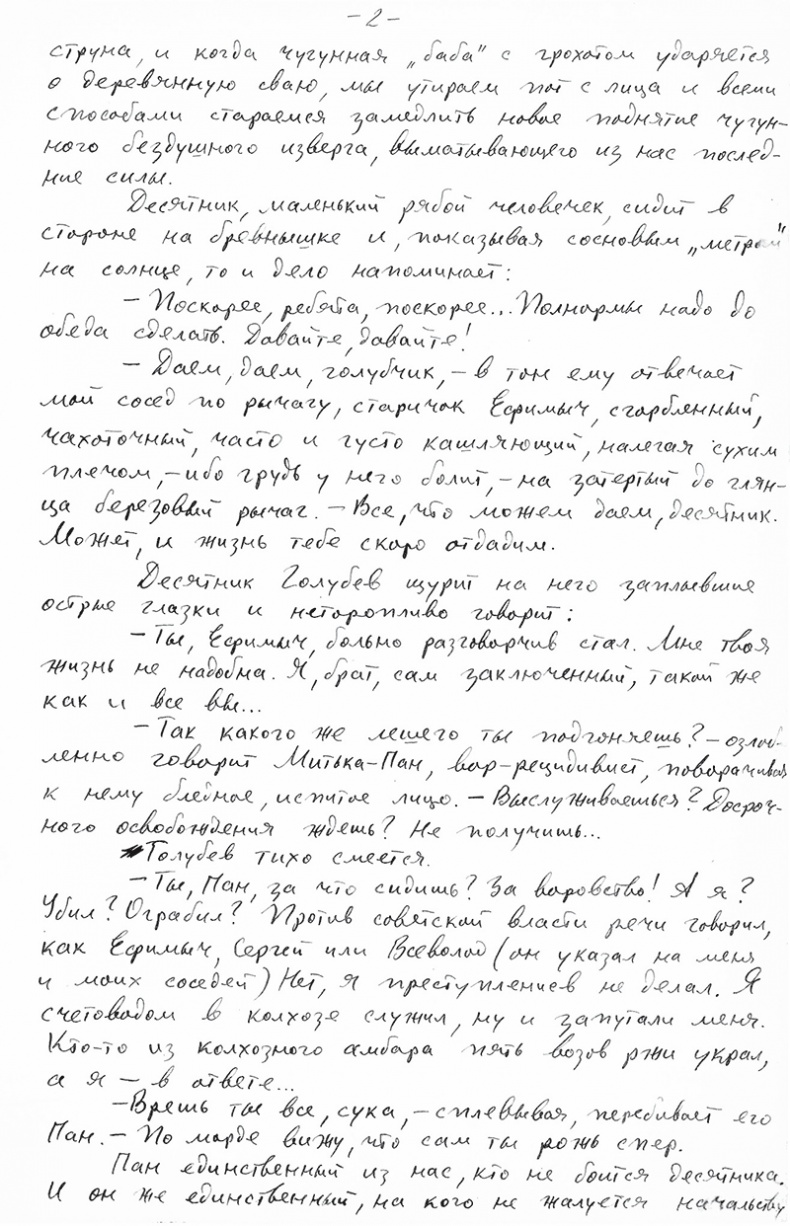 -2-
струна, и когда чугунная „баба" с грохотом ударяется
о деревянную сваю, мы утираем пот с лица и всеми
способами стараемся замедлить новое поднятие чугун-
ного бездушного изверга, выматывающего из нас послед-
ние силы.
Десятник, маленький рябой человечек, сидит в
стороне на бревнышке и, показывая сосновым „метром"
на солнце, то и дело напоминает:
- Поскорее, ребята, поскорее... Полнормы надо до
обеда сделать. Давайте, давайте!
- Даем, даем, голубчик, - в тон ему отвечает
мой сосед по рычагу, старичок Ефимыч, сгорбленный,
чахоточный, часто и густо кашляющий, налегая сухим
плечом, - ибо грудь у него болит, - на затертый до глян-
ца березовый рычаг. - Все, что можем даем, десятник.
Может, и жизнь тебе скоро отдадим.
Десятник Голубев щурит на него заплывшие
острые глазки и неторопливо говорит:
- Ты, Ефимыч, больно разговорчив стал. Мне твоя
жизнь не надобна. Я, брат, сам заключенный, такой же
как и все вы...
- Так какого же лешего ты подгоняешь? - озлоб-
ленно говорит Митька-Пан, вор-рецидивист, поворачивая
к нему бледное, испитое лицо. - Выслуживаешься? Досроч-
ного освобождения ждешь? Не получишь...
Голубев тихо смеется.
- Ты, Пан, за что сидишь? За воровство! А я?
Убил? Ограбил? Против советской власти речи говорил,
как Ефимыч, Сергей или Всеволод (он указал на меня
и моих соседей) Нет, я преступлениев не делал. Я
счетоводом в колхозе служил, ну и запутали меня.
Кто-то из колхозного амбара пять возов ржи украл,
а я - в ответе...
- Врешь ты все, сука, - сплевывая, перебивает его
Пан. - По морде вижу, что сам ты рожь спер.
Пан единственный из нас, кто не боится десятника.
И он же единственный, на кого не жалуется начальству